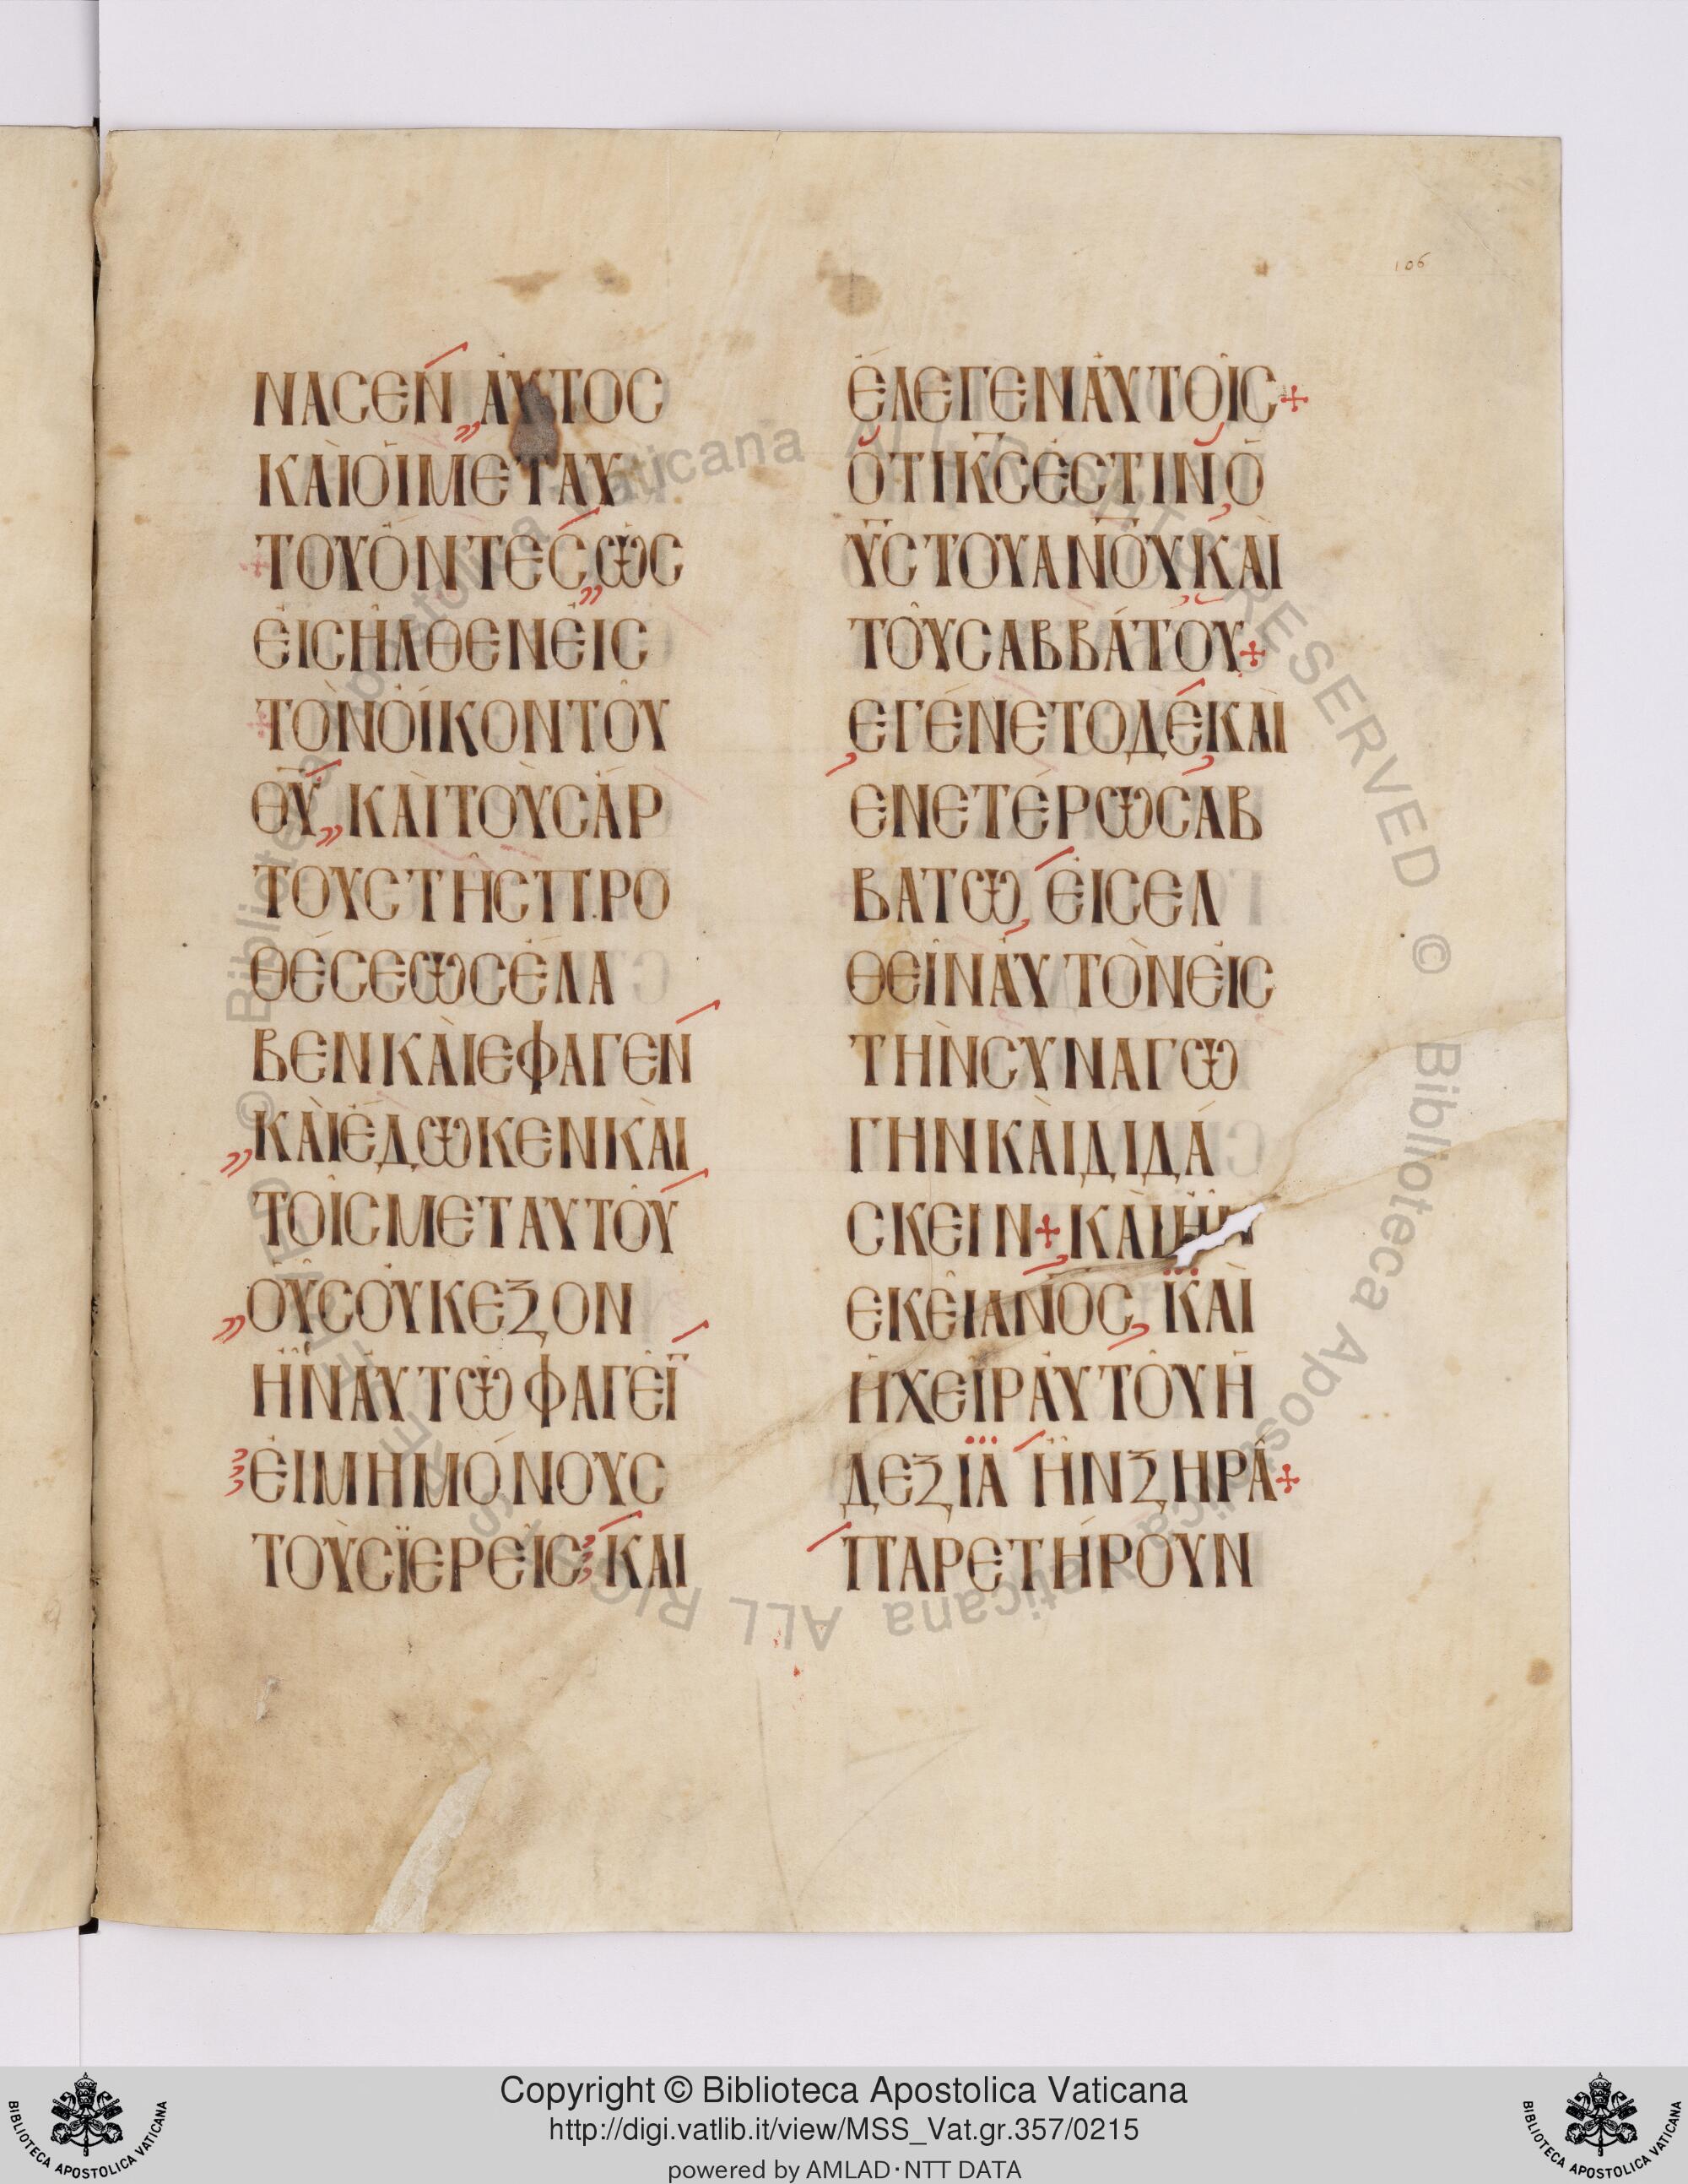 106
ΝΑϹΕΝ ΑΥΤΟϹ
ΚΑΙΟΙΜΕΤΑΥ
ΤΟΥΟΝΤΕϹ ΩϹ
ΕΙϹΗΛΘΕΝΕΙϹ
ΤΟΝΟΙΚΟΝΤΟΥ
ΘΥ ΚΑΙΤΟΥϹΑΡ
ΤΟΥϹΤΗϹΠΡΟ
ΘΕϹΕΩϹΕΛΑ
ΒΕΝΚΑΙΕΦΑΓΕΝ
ΚΑΙΕΔΩΚΕΝΚΑΙ
ΤΟΙϹΜΕΤΑΥΤΟΥ
ΟΥϹΟΥΚΕΞΟΝ
ΗΝΑΥΤΩΦΑΓΕΙ̅
ΕΙΜΗΜΟΝΟΥϹ
ΤΟΥϹΪΕΡΕΙϹ ΚΑΙ
ΕΛΕΓΕΝΑΥΤΟΙϹ+
ΟΤΙΚ̅Ϲ̅ΕϹΤΙΝ Ο
Υ̅Ϲ̅ΤΟΥΑΝ̅Ο̅Υ̅ ΚΑΙ
ΤΟΥϹΑΒΒΑΤΟΥ+
ΕΓΕΝΕΤΟΔΕ ΚΑΙ
ΕΝΕΤΕΡΩϹΑΒ
ΒΑΤΩ ΕΙϹΕΛ
ΘΕΙΝΑΥΤΟΝΕΙϹ
ΤΗΝϹΥΝΑΓΩ
ΓΗΝΚΑΙΔΙΔΑ
ϹΚΕΙΝ+ΚΑΙΗΝ
ΕΚΕΙΑΝ̅Ο̅Ϲ̅ ΚΑΙ
ΗΧΕΙΡΑΥΤΟΥΗ
ΔΕΞΙΑ ΗΝΞΗΡΑ+
ΠΑΡΕΤΗΡΟΥΝ
© Biblioteca Apostolica Vaticana ALL RIGHTS RESERVED © Biblioteca Apostolica Vaticana ALL RIGHTS RESERVED
Copyright © Biblioteca Apostolica Vaticana
http://digi.vatlib.it/view/MSS_Vat.gr.357/0215
powered by AMLAD·NTT DATA
BIBLIOTECA APOSTOLICA VATICANA
BIBLIOTECA APOSTOLICA VATICANA